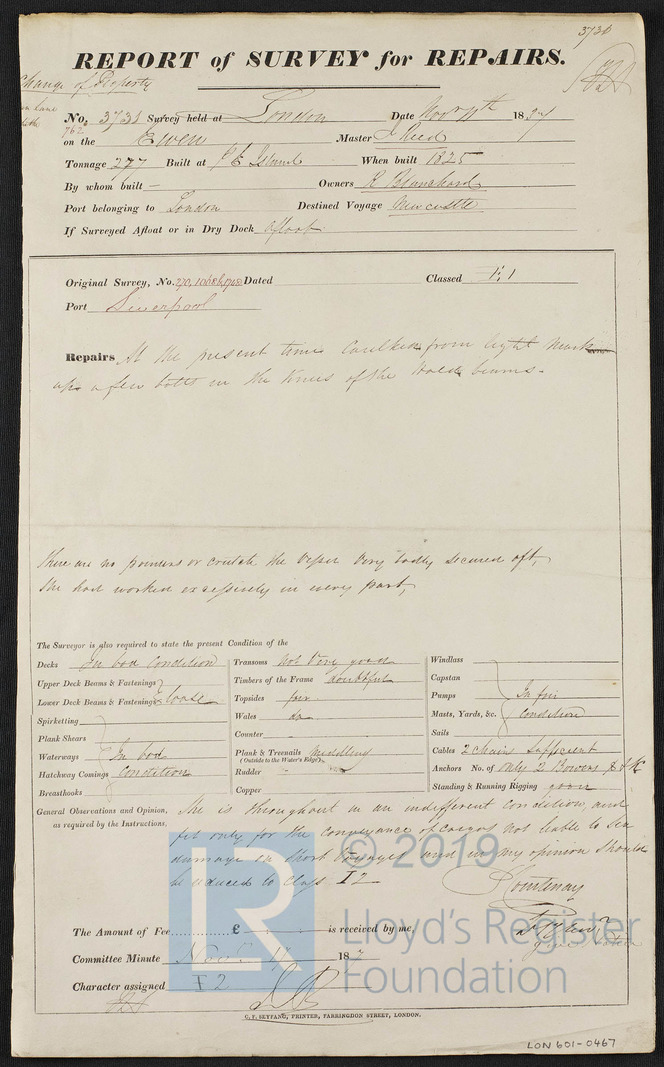 3731
REPORT of SURVEY for REPAIRS.
Change of Property
No. 3731 Survey held at London Date Novr 18 37
762
on the Ewen Master J Reed
Tonnage 277 Built at P E Island When built 1825
By whom built — Owners R Blanchard
Port belonging to London Destined Voyage Newcastle
If Surveyed Afloat or in Dry Dock Afloat
Original Survey, No. Dated Classed Æ 1
Port Liverpool
Repairs At the present time Caulked from light mark
up a few bolts in the knees of the hold beams.
There are no pointers or crutch the Vessel Very badly secured aft,
She had worked excessively in every part,
The Surveyor is also required to state the present Condition of the
Decks In bad Condition
Upper Deck Beams & Fastenings
Lower Deck Beams & Fastenings loose
Spirketting
Plank Shears
Waterways In bad
Hatchway Comings Condition
Breasthooks
Transoms Not Very good
Timbers of the Frame doubtful
Topsides fair
Wales do
Counter
Plank & Treenails Middling
(Outside to the Water's Edge)
Rudder
Copper
Windlass
Capstan
Pumps In fair
Masts, Yards, &c. Condition
Sails
Cables 2 chains Sufficient
Anchors No. of only 2 Bowers &
Standing & Running Rigging good
General Observations and Opinion, She is throughout in an indifferent condition, and
as required by the Instructions. fit only for the conveyance of cargos not liable to Sea
damage on Short Voyages and in my opinion Should
be reduced to Class I 2
Courtenay
The Amount of Fee............ £ is received by me,
Committee Minute Novr. 17 183
Character assigned I 2
C. F. SEYFANG, PRINTER, FARRINGDON STREET, LONDON.
LON 601-0467
© 2019
Lloyd's Register
Foundation
LR